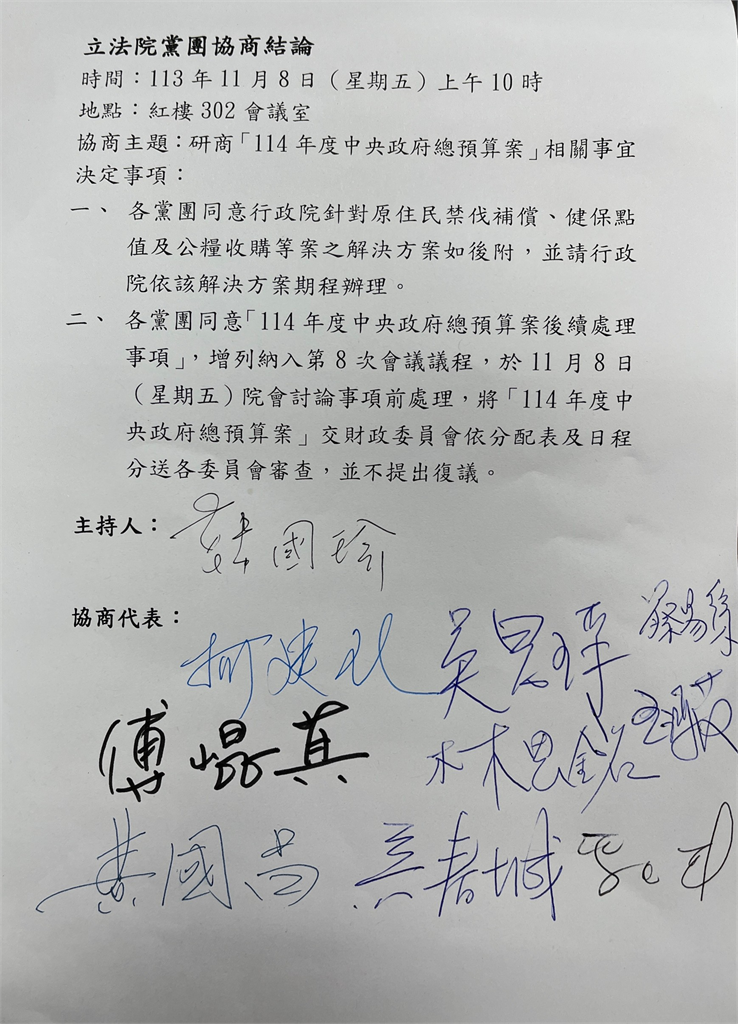 立法院黨團協商結論
時間：113年11月8日（星期五）上午10時
地點：紅樓302會議室
協商主題：研商「114年度中央政府總預算案」相關事宜
決定事項：
一、各黨團同意行政院針對原住民禁伐補償、健保點
值及公糧收購等案之解決方案如後附，並請行政
院依該解決方案期程辦理。
二、各黨團同意「114年度中央政府總預算案後續處理
事項」，增列納入第8次會議議程，於11月8日
（星期五）院會討論事項前處理，將「114年度中
央政府總預算案」交財政委員會依分配表及日程
分送各委員會審查，並不提出復議。
主持人：韓國瑜
協商代表：
柯建銘 吳思瑤 蔡易餘
傅崐萁 林思銘
黃國昌 吳春城